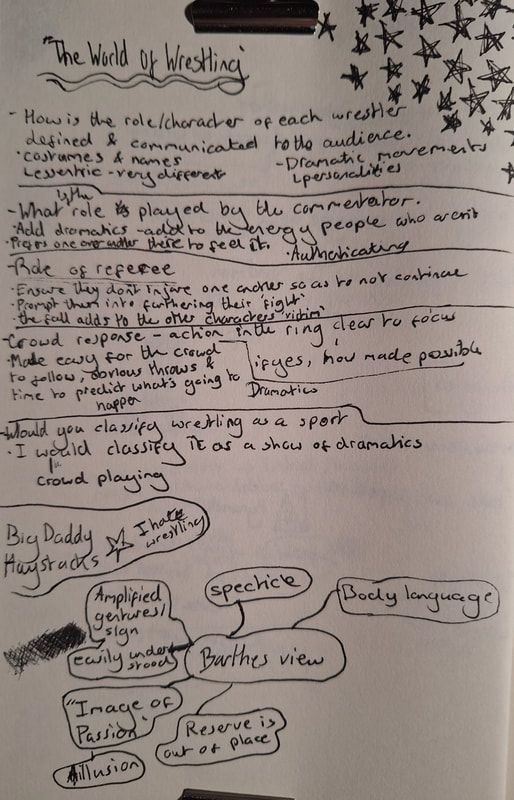 "The World Of Wrestling
- How is the role/character of each wrestler
defined & communicated to the audience.
• costumes & names
Lessentric - very different
- Dramatic movements
Lpersonalities
- What role is the played by the commentator.
• Add dramatics - add to the energy people who aren't
• Prefers one over another there to feel it.
• Authenticating
- Role of referee
• Ensure they don't injure one another so as to not continue
• Prompt them into furthering their 'fight'
• the fall adds to the other characters 'victim'
- Crowd response - action in the ring clear to focus
if yes, how made possible
• Made easy for the crowd
to follow, obvious throws &
time to predict what's going to
happen
Dramatics
- Would you classify wrestling as a sport
• I would classify it as a show of dramatics
crowd playing
Big Daddy
Haystacks
I hate
wrestling
Amplified
gentures/
sign
easily under
stood
spectick
Body language
Barthes view
"Image of
Passion"
illusion
Reserve is
out of place